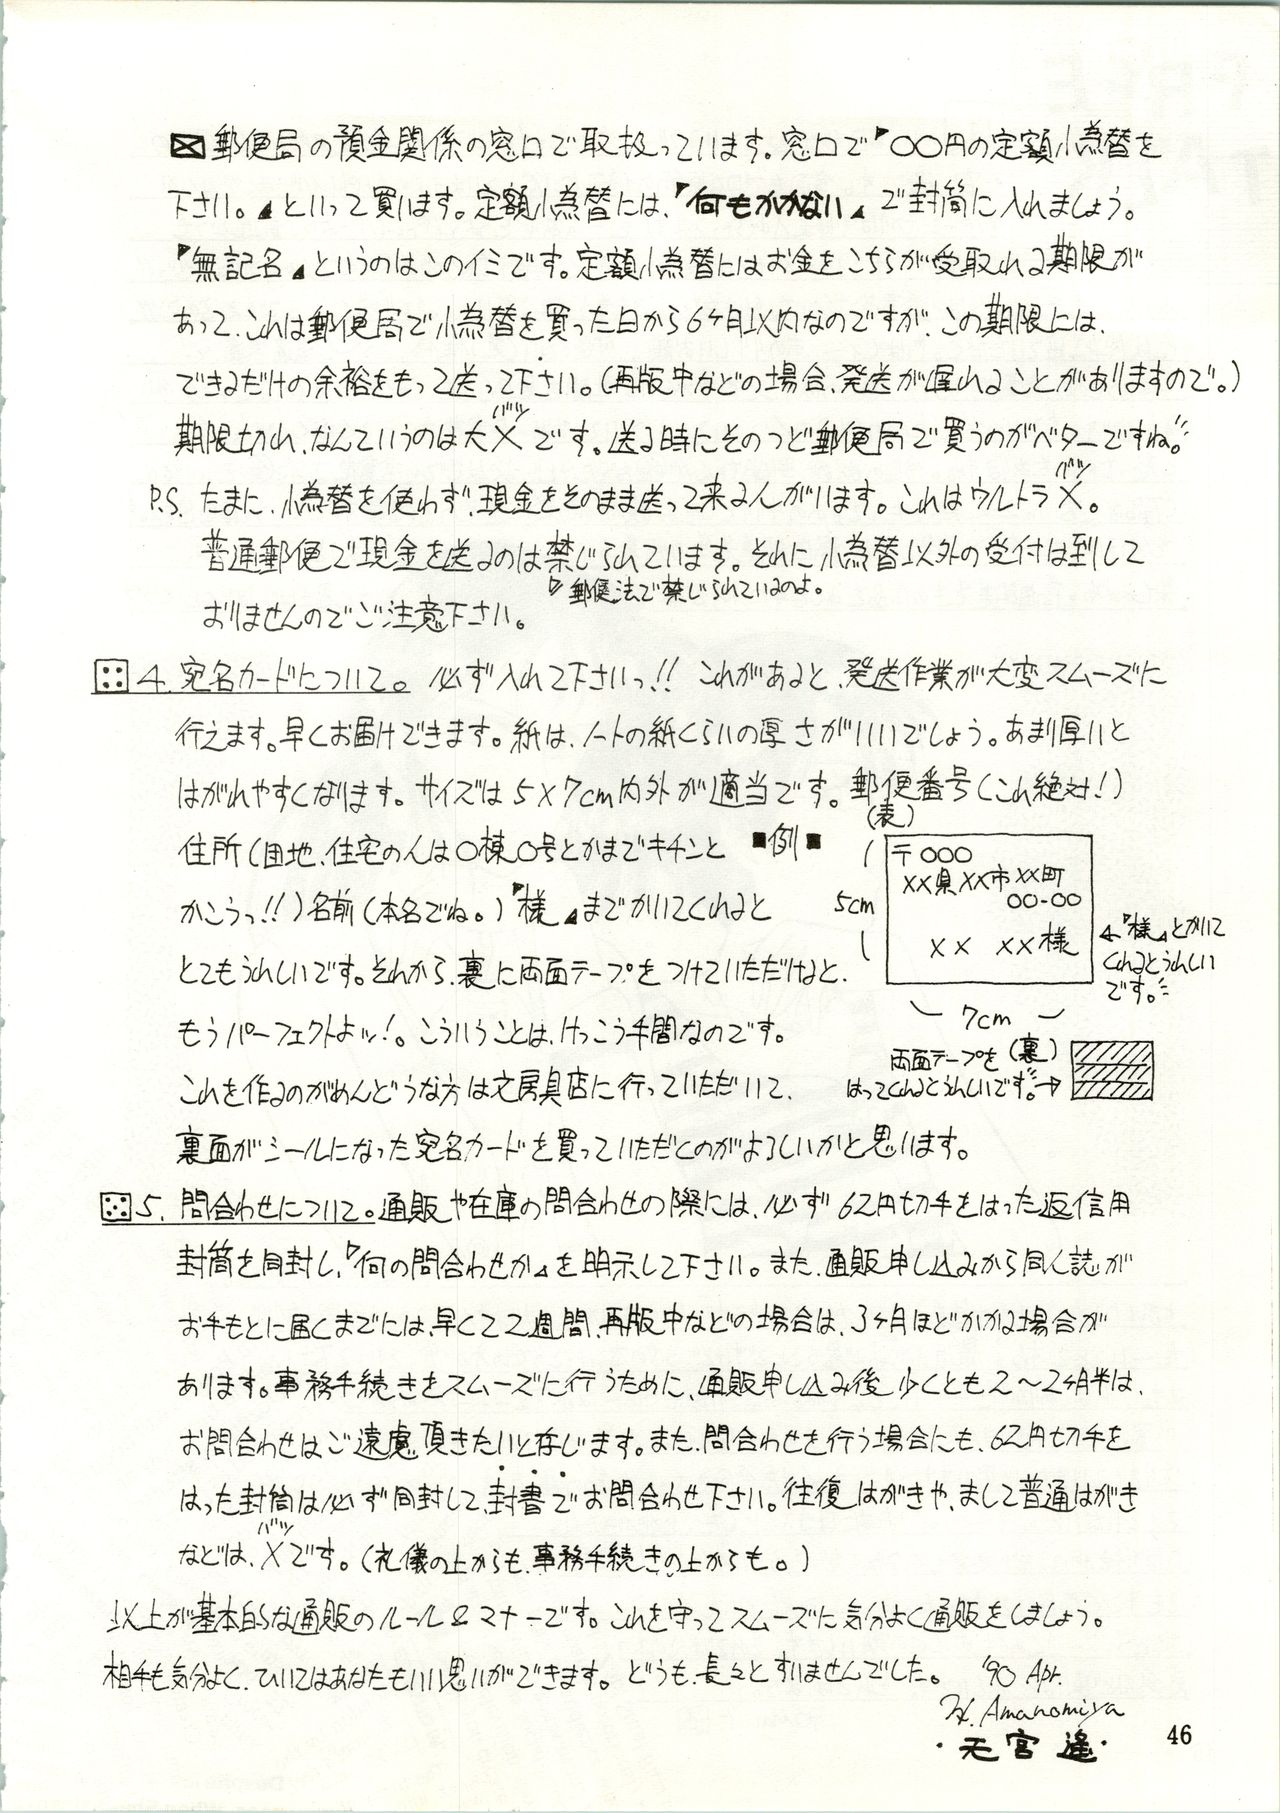 郵便局の預金関係の窓口で取扱っています。窓口で『〇〇円の定額小為替を
下さい。』といって買います。定額小為替には、『何もかかない』で封筒に入れましょう。
『無記名』というのはこのイミです。定額小為替にはお金をこちらが受取れる期限が
あって、これは郵便局で小為替を買った日から6ヶ月以内なのですが、この期限には、
できるだけの余裕をもって送って下さい。(再版中などの場合、発送が遅れることがありますので。)
期限切れ、なんていうのは大X(バツ)です。送る時にそのつど郵便局で買うのがベターですね。
P.S. たまに、小為替を使わず、現金をそのまま送って来る人がいます。これはウルトラX(バツ)。
普通郵便で現金を送るのは禁じられています。それに小為替以外の受付は致して
『郵便法で禁じられているのよ。
おりませんのでご注意下さい。
4. 宛名カードについて。必ず入れて下さいっ!! これがあると、発送作業が大変スムーズに
行えます。早くお届けできます。紙は、ノートの紙くらいの厚さがいいでしょう。あまり厚いと
はがれやすくなります。サイズは5×7cm内外が適当です。郵便番号(これ絶対!)
住所(団地、住宅の人は〇棟〇号とかまでキチンと
かこうっ!!)名前(本名でね。)『様』までかいてくれると
とてもうれしいです。それから、裏に両面テープをつけていただけると、
もうパーフェクトよッ!。こういうことは、けっこう手間なのです。
これを作るのがめんどうな方は文房具店に行っていただいて、
裏面がシールになった宛名カードを買っていただくのがよろしいかと思います。
■例■
(表)
〒〇〇〇
××県××市××町
〇〇-〇〇
×× ××様
5cm
7cm
←『様』とかいて
くれるとうれしい
です。
(裏)
両面テープを
はってくれるとうれしいです。→
5. 問合わせについて。通販や在庫の問合わせの際には、必ず62円切手をはった返信用
封筒を同封し、『何の問合わせか』を明示して下さい。また、通販申し込みから同人誌が
お手もとに届くまでには、早くて2週間、再版中などの場合は、3ヶ月ほどかかる場合が
あります。事務手続きをスムーズに行うために、通販申し込み後少くとも2〜2ヶ月半は、
お問合わせはご遠慮頂きたいと存じます。また、問合わせを行う場合にも、62円切手を
はった封筒は必ず同封して、封書でお問合わせ下さい。往復はがきや、まして普通はがき
などは、X(バツ)です。(礼儀の上からも、事務手続きの上からも。)
以上が基本的な通販のルール&マナーです。これを守ってスムーズに気分よく通販をしましょう。
相手も気分よく、ひいてはあなたもいい思いができます。どうも、長々とすいませんでした。 '90 Apr.
H. Amanomiya
・天宮遥・
46